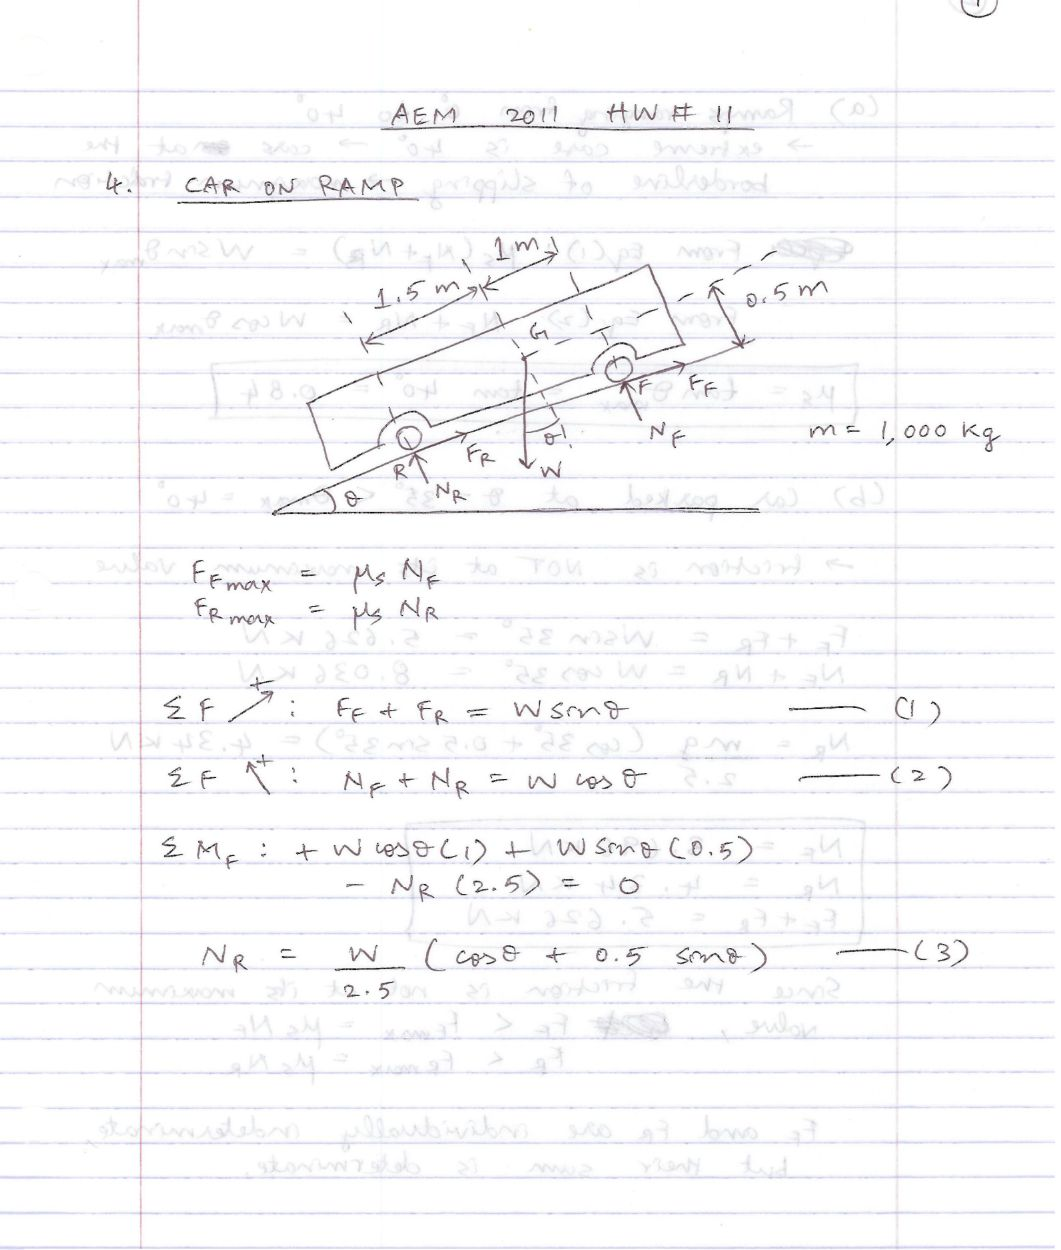 AEM 2011 HW # 11
4. CAR ON RAMP
1 m
1.5 m
0.5 m
G
F
F_F
N_F
θ
W
F_R
R
N_R
θ
m = 1,000 kg
F_Fmax = μs N_F
F_Rmax = μs N_R
ΣF ↗+ : F_F + F_R = W sinθ —— (1)
ΣF ↖+ : N_F + N_R = W cosθ —— (2)
ΣM_F : + W cosθ (1) + W sinθ (0.5)
− N_R (2.5) = 0
N_R = W/2.5 (cosθ + 0.5 sinθ) —— (3)